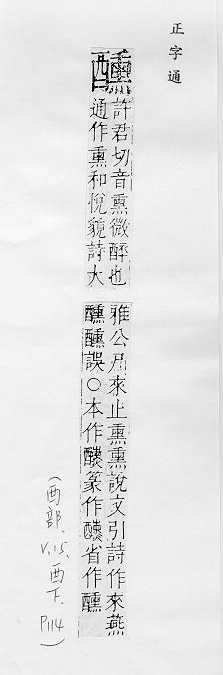 正字通
醺
許君切音熏微醉也
通作熏和悅貌詩大
雅公尸來止熏熏說文引詩作來燕
醺醺誤○本作篆作省作醺
(酉部、V.15、酉下、P114)